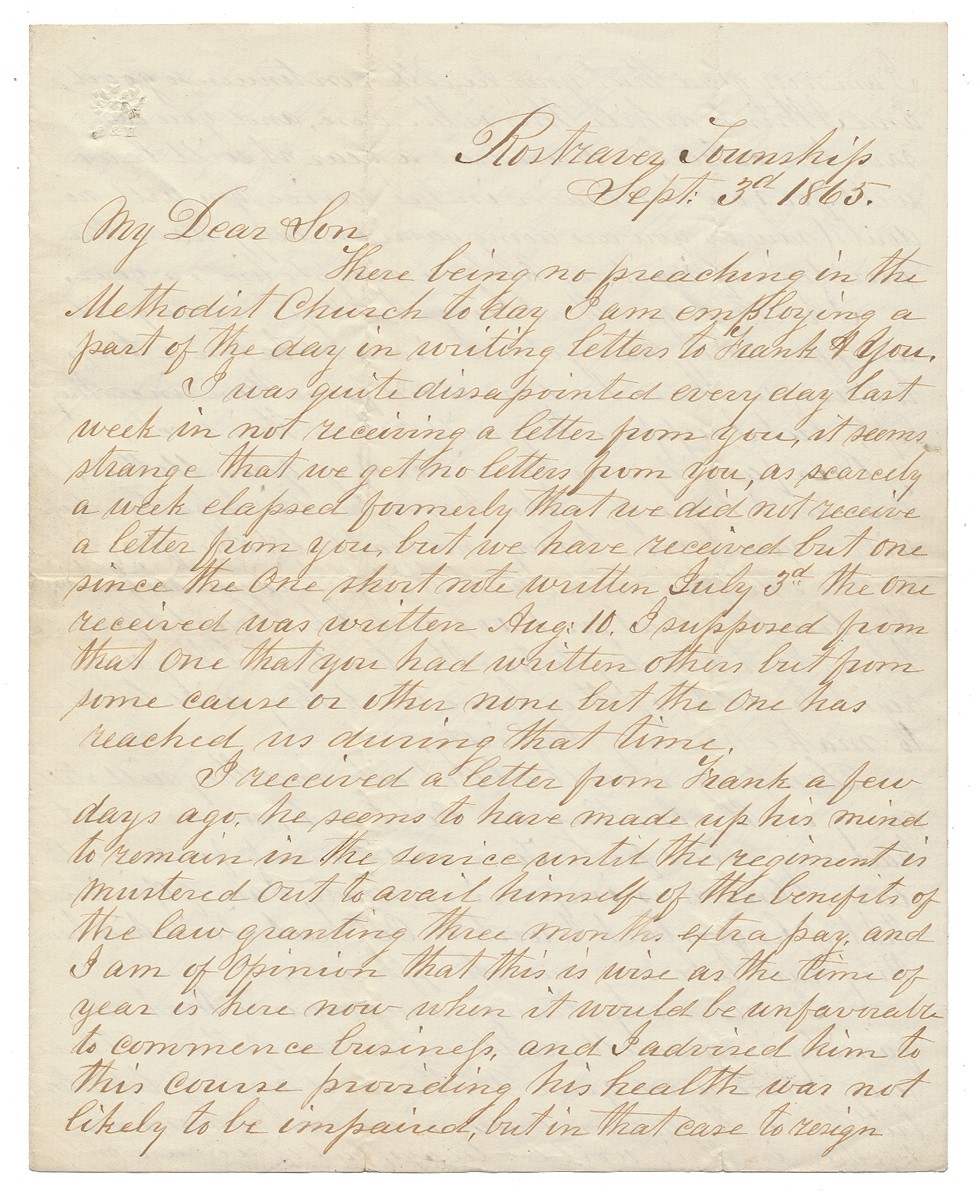 Rostraver Township
Sept: 3d 1865.
My Dear Son
There being no preaching in the
Methodist Church to day I am employing a
part of the day in writing letters to Frank & You.
I was quite dissapointed every day last
week in not receiving a letter from you, it seems
strange that we get no letters from you, as scarcely
a week elapsed formerly that we did not receive
a letter from you, but we have received but one
since the One short note written July 3d the one
received was written Aug: 10. I supposed from
that One that you had written others but from
some cause or other none but the One has
reached us during that time.
I received a letter from Frank a few
days ago. he seems to have made up his mind
to remain in the service until the regiment is
mustered out to avail himself of the benefits of
the law granting three months extra pay, and
I am of Opinion that this is wise as the time of
year is here now when it would be unfavorable
to commence business, and I advised him to
this course providing his health was not
likely to be impaired, but in that case to resign